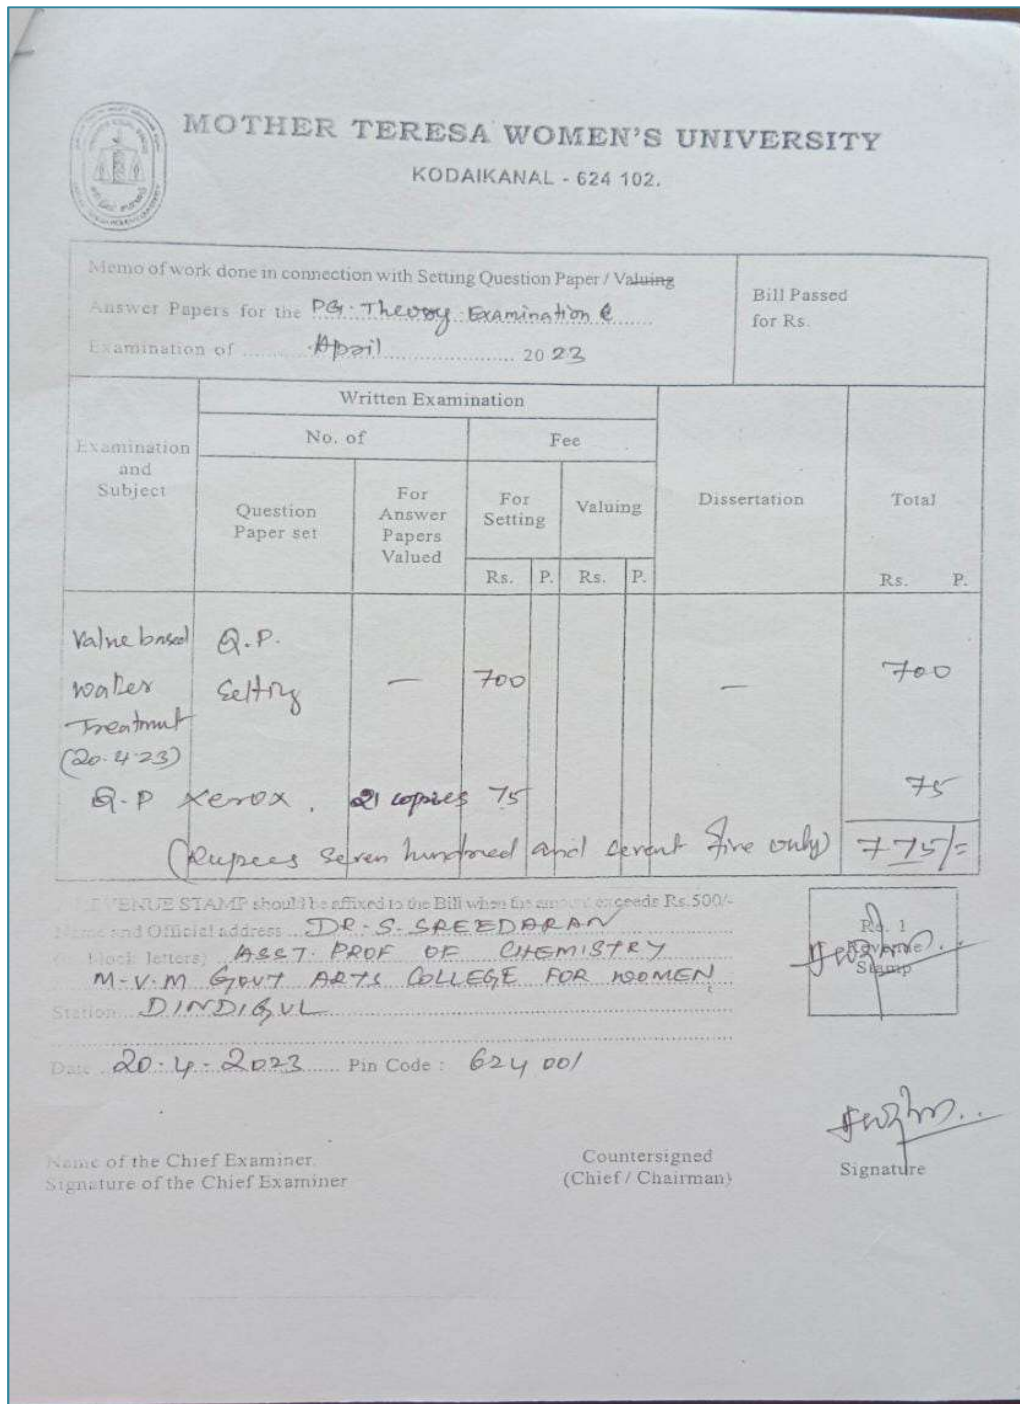 MOTHER TERESA WOMEN'S UNIVERSITY
KODAIKANAL - 624 102.
Memo of work done in connection with Setting Question Paper / Valuing
Answer Papers for the PG. Theory Examination
Examination of April 2023
Bill Passed
for Rs.
Written Examination
No. of
Fee
Examination
and
Subject
Question
Paper set
For
Answer
Papers
Valued
For
Setting
Valuing
Dissertation
Total
Rs. P. Rs. P.
Rs. P.
Value based Q.P.
Water Setting — 700 — 700
Treatmut
(20.4.23)
Q.P Xerox. 21 copies 75 75
(Rupees Seven hundred and sevent five only) 775/=
REVENUE STAMP should be affixed to the Bill when the amount exceeds Rs.500/-
Name and Official address DR. S. SREEDARAN
(in block letters) ASST. PROF OF CHEMISTRY
M.V.M GOVT ARTS COLLEGE FOR WOMEN
Station DINDIGUL
Rs. 1
Revenue
Stamp
Date 20.4.2023 Pin Code : 624 001
Name of the Chief Examiner.
Signature of the Chief Examiner
Countersigned
(Chief / Chairman)
Signature